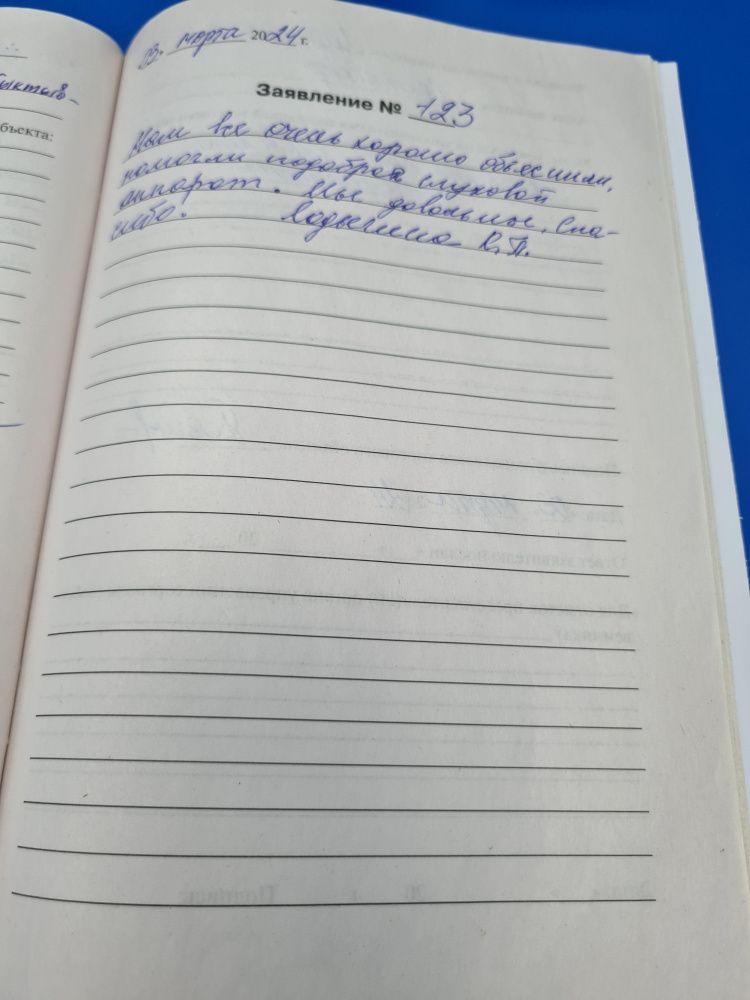 03. марта 2024 г.
Заявление № 123
Нам все очень хорошо объяснили,
помогли подобрать слуховой
аппарат. Мы довольны. Спа-
сибо. К.П.
бъекта: